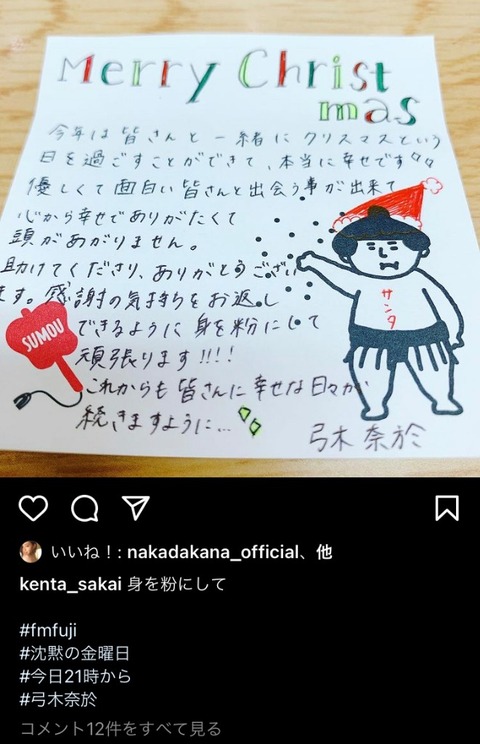 Merry Christ
mas
今年は皆さんと一緒にクリスマスという
日を過ごすことができて、本当に幸せです
優しくて面白い皆さんと出会う事が出来て
心から幸せでありがたくて
頭があがりません。
助けてくださり、ありがとうござい
ます。感謝の気持ちをお返し
できるように身を粉にして
頑張ります!!!
これからも皆さんに幸せな日々が
続きますように…
サンタ
SUMOU
弓木奈於
いいね！: nakadakana_official、他
kenta_sakai 身を粉にして
#fmfuji
#沈黙の金曜日
#今日21時から
#弓木奈於
コメント12件をすべて見る